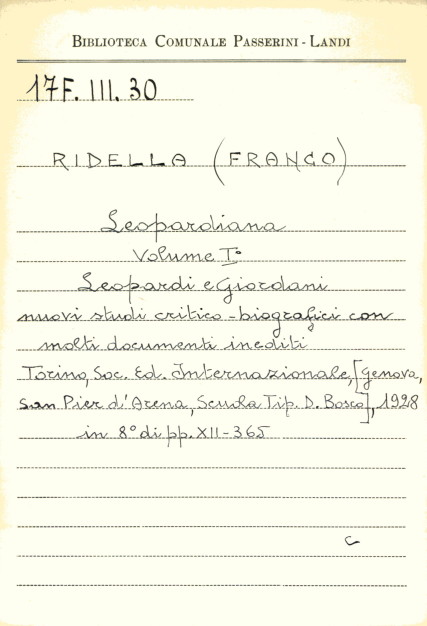 BIBLIOTECA COMUNALE PASSERINI - LANDI
17F. III. 30
RIDELLA (FRANCO)
Leopardiana
Volume I°
Leopardi e Giordani
nuovi studi critico - biografici con
molti documenti inediti
Torino, Soc. Ed. Internazionale, [Genova,
San Pier d'Arena, Scuola Tip. D. Bosco], 1928
in 8° di pp. XII - 365
c